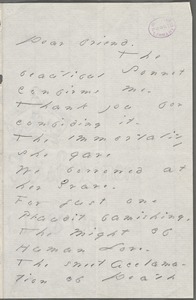 Dear friend.
The
beautiful Sonnet
confirms me.
Thank you for
confiding it.
The immortality
she gave
We borrowed at
her Grave.
For just one
Plaudit famishing.
The Might of
Human Love.
The sweet Acclama-
tion of Death